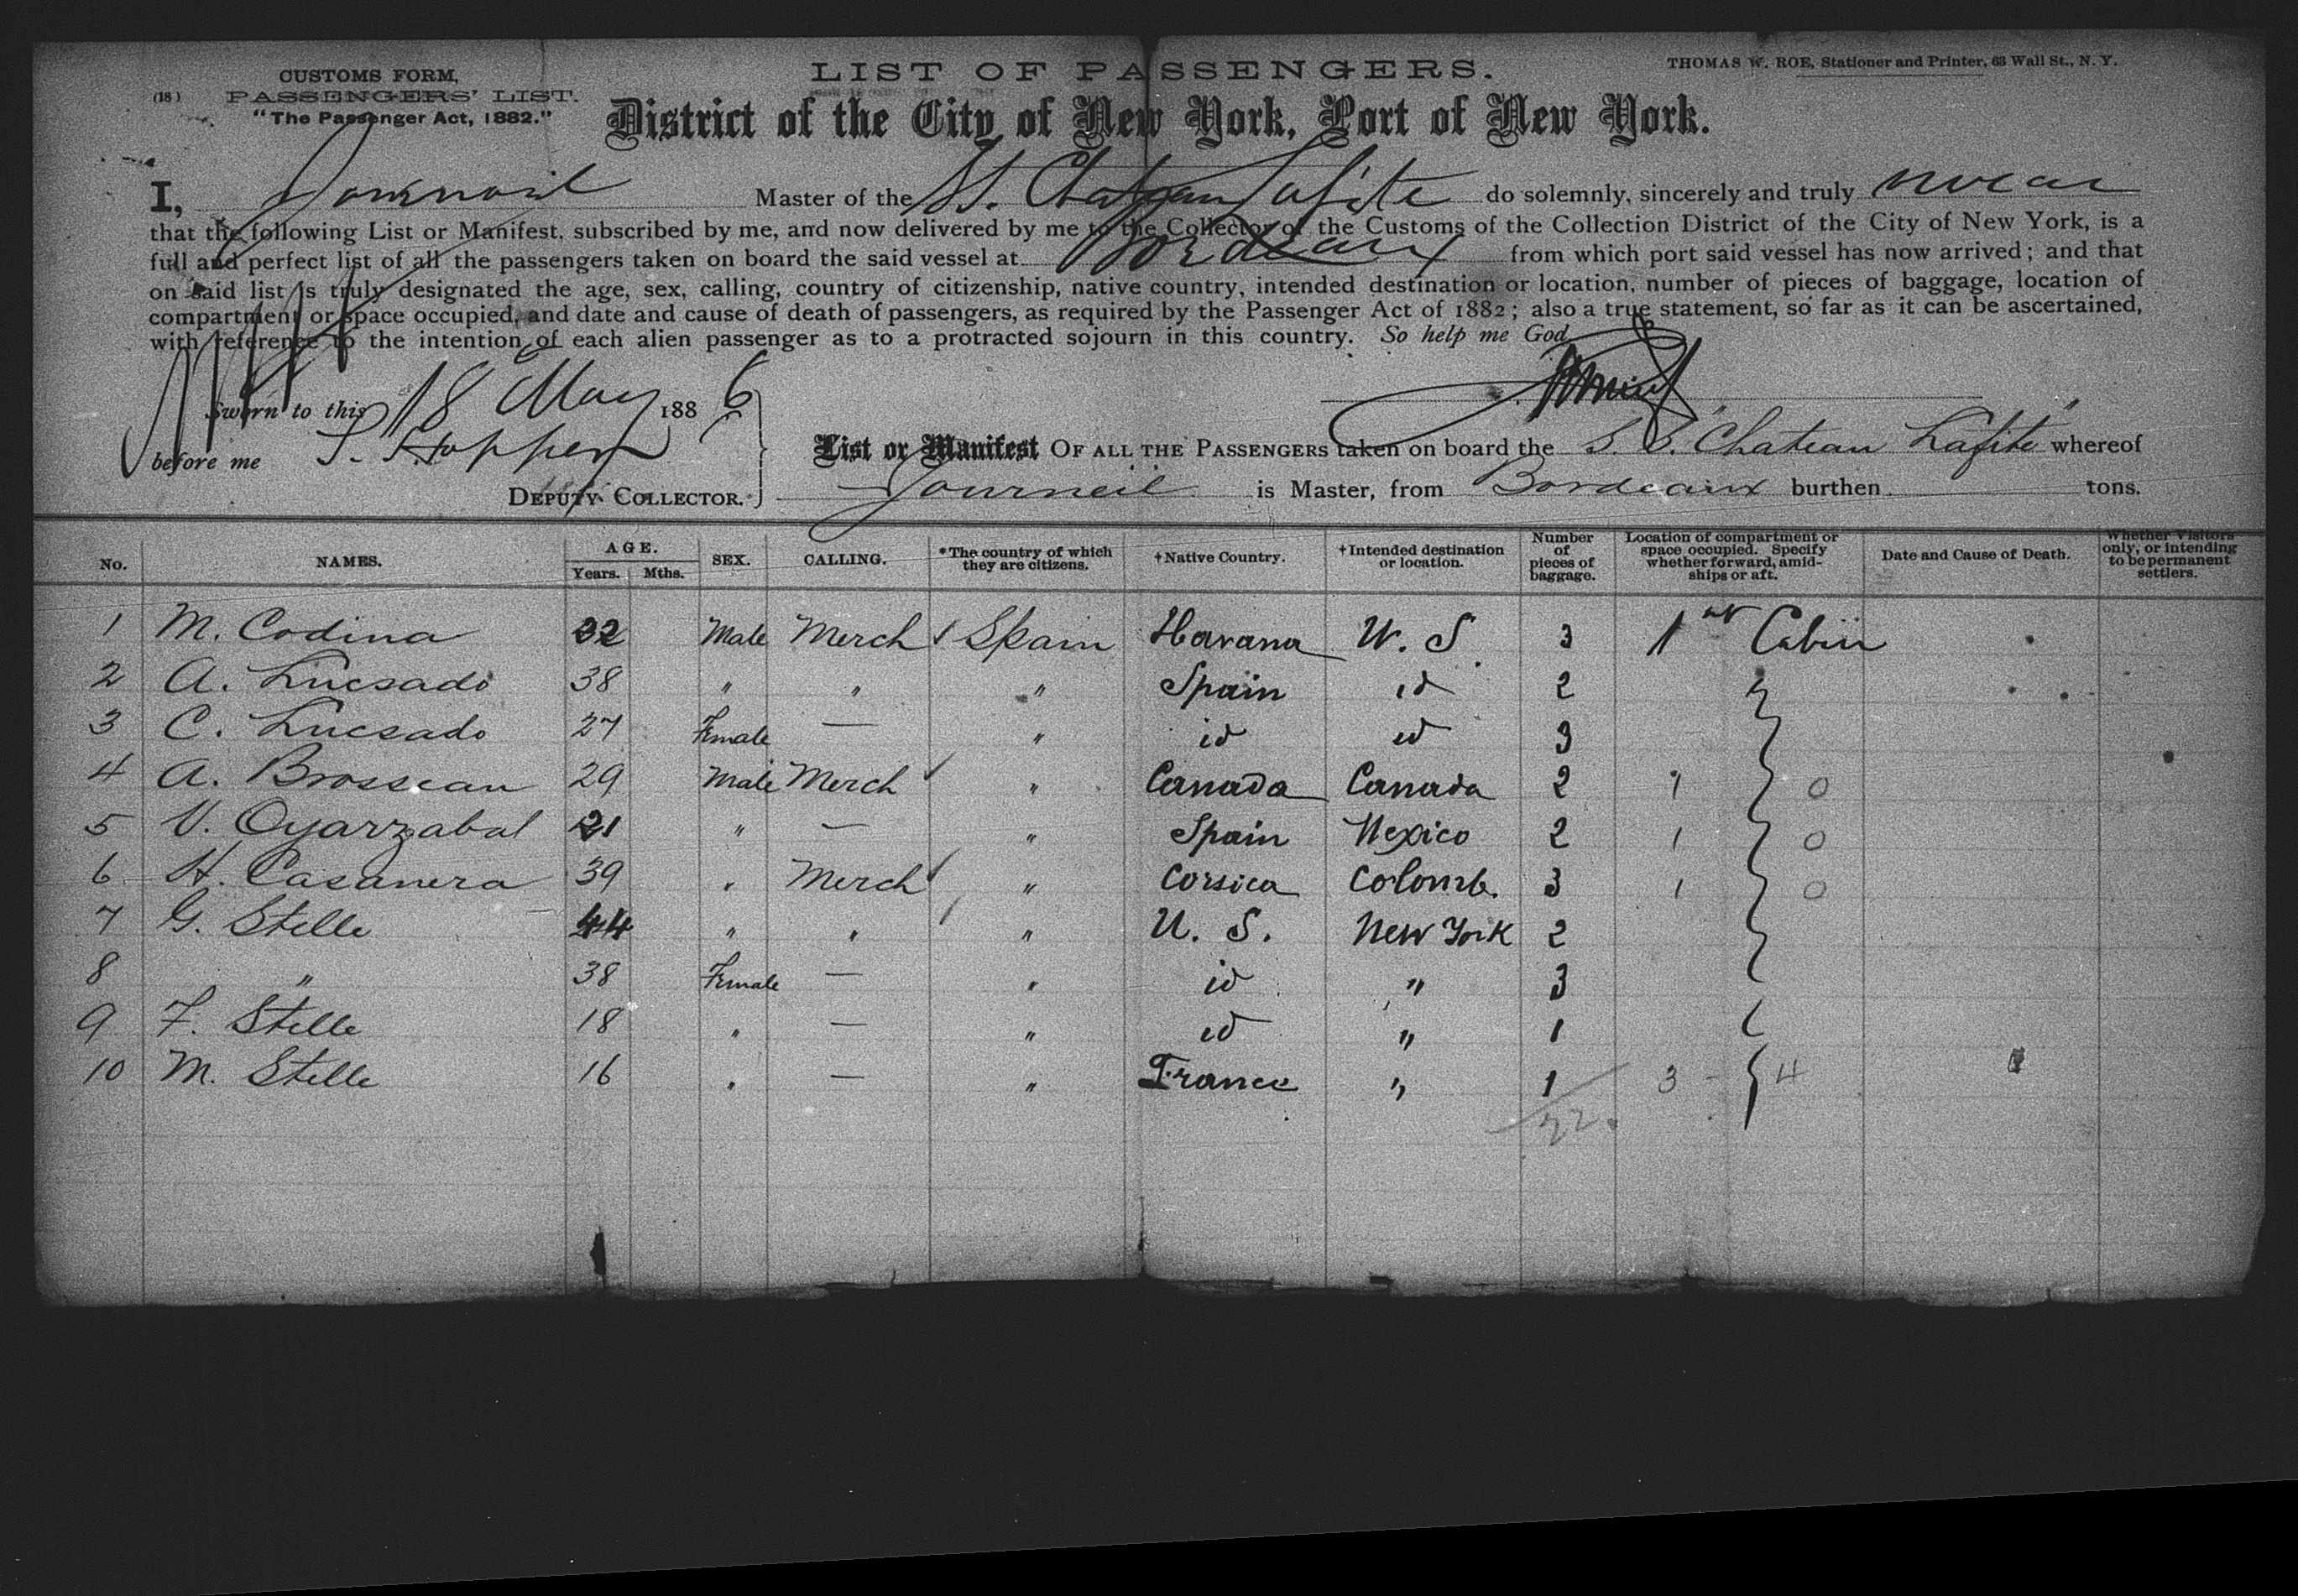 (18)
CUSTOMS FORM,
PASSENGERS' LIST.
"The Passenger Act, 1882."
LIST OF PASSENGERS.
THOMAS W. ROE, Stationer and Printer, 63 Wall St., N. Y.
District of the City of New York, Port of New York.
I, Master of the SS. Chateau Lafite do solemnly, sincerely and truly swear
that the following List or Manifest, subscribed by me, and now delivered by me to the Collector of the Customs of the Collection District of the City of New York, is a
full and perfect list of all the passengers taken on board the said vessel at Bordeaux from which port said vessel has now arrived; and that
on said list is truly designated the age, sex, calling, country of citizenship, native country, intended destination or location, number of pieces of baggage, location of
compartment or space occupied, and date and cause of death of passengers, as required by the Passenger Act of 1882; also a true statement, so far as it can be ascertained,
with reference to the intention of each alien passenger as to a protracted sojourn in this country. So help me God.
Sworn to this 18 May 1886
before me
DEPUTY COLLECTOR.
List or Manifest OF ALL THE PASSENGERS taken on board the S. S. "Chateau Lafite" whereof
Journeil is Master, from Bordeaux burthen tons.
No. NAMES. AGE. Years. Mths. SEX. CALLING. *The country of which they are citizens. †Native Country. †Intended destination or location. Number of pieces of baggage. Location of compartment or space occupied. Specify whether forward, amidships or aft. Date and Cause of Death. Whether Visitors only, or intending to be permanent settlers.
1 M. Codina 32 Male Merch Spain Havana U. S. 3 1st Cabin
2 A. Lucsado 38 " " " Spain id 2
3 C. Lucsado 27 Female — " id id 3
4 A. Brosseau 29 Male Merch " Canada Canada 2 1 0
5 V. Oyarzabal 21 " — " Spain Mexico 2 1 0
6 H. Casanera 39 " Merch " Corsica Colomb. 3 1 0
7 G. Stelle 44 " " " U. S. New York 2
8 " 38 Female — " id " 3
9 F. Stelle 18 " — " id " 1
10 M. Stelle 16 " — " France " 1 3 - 4
22.